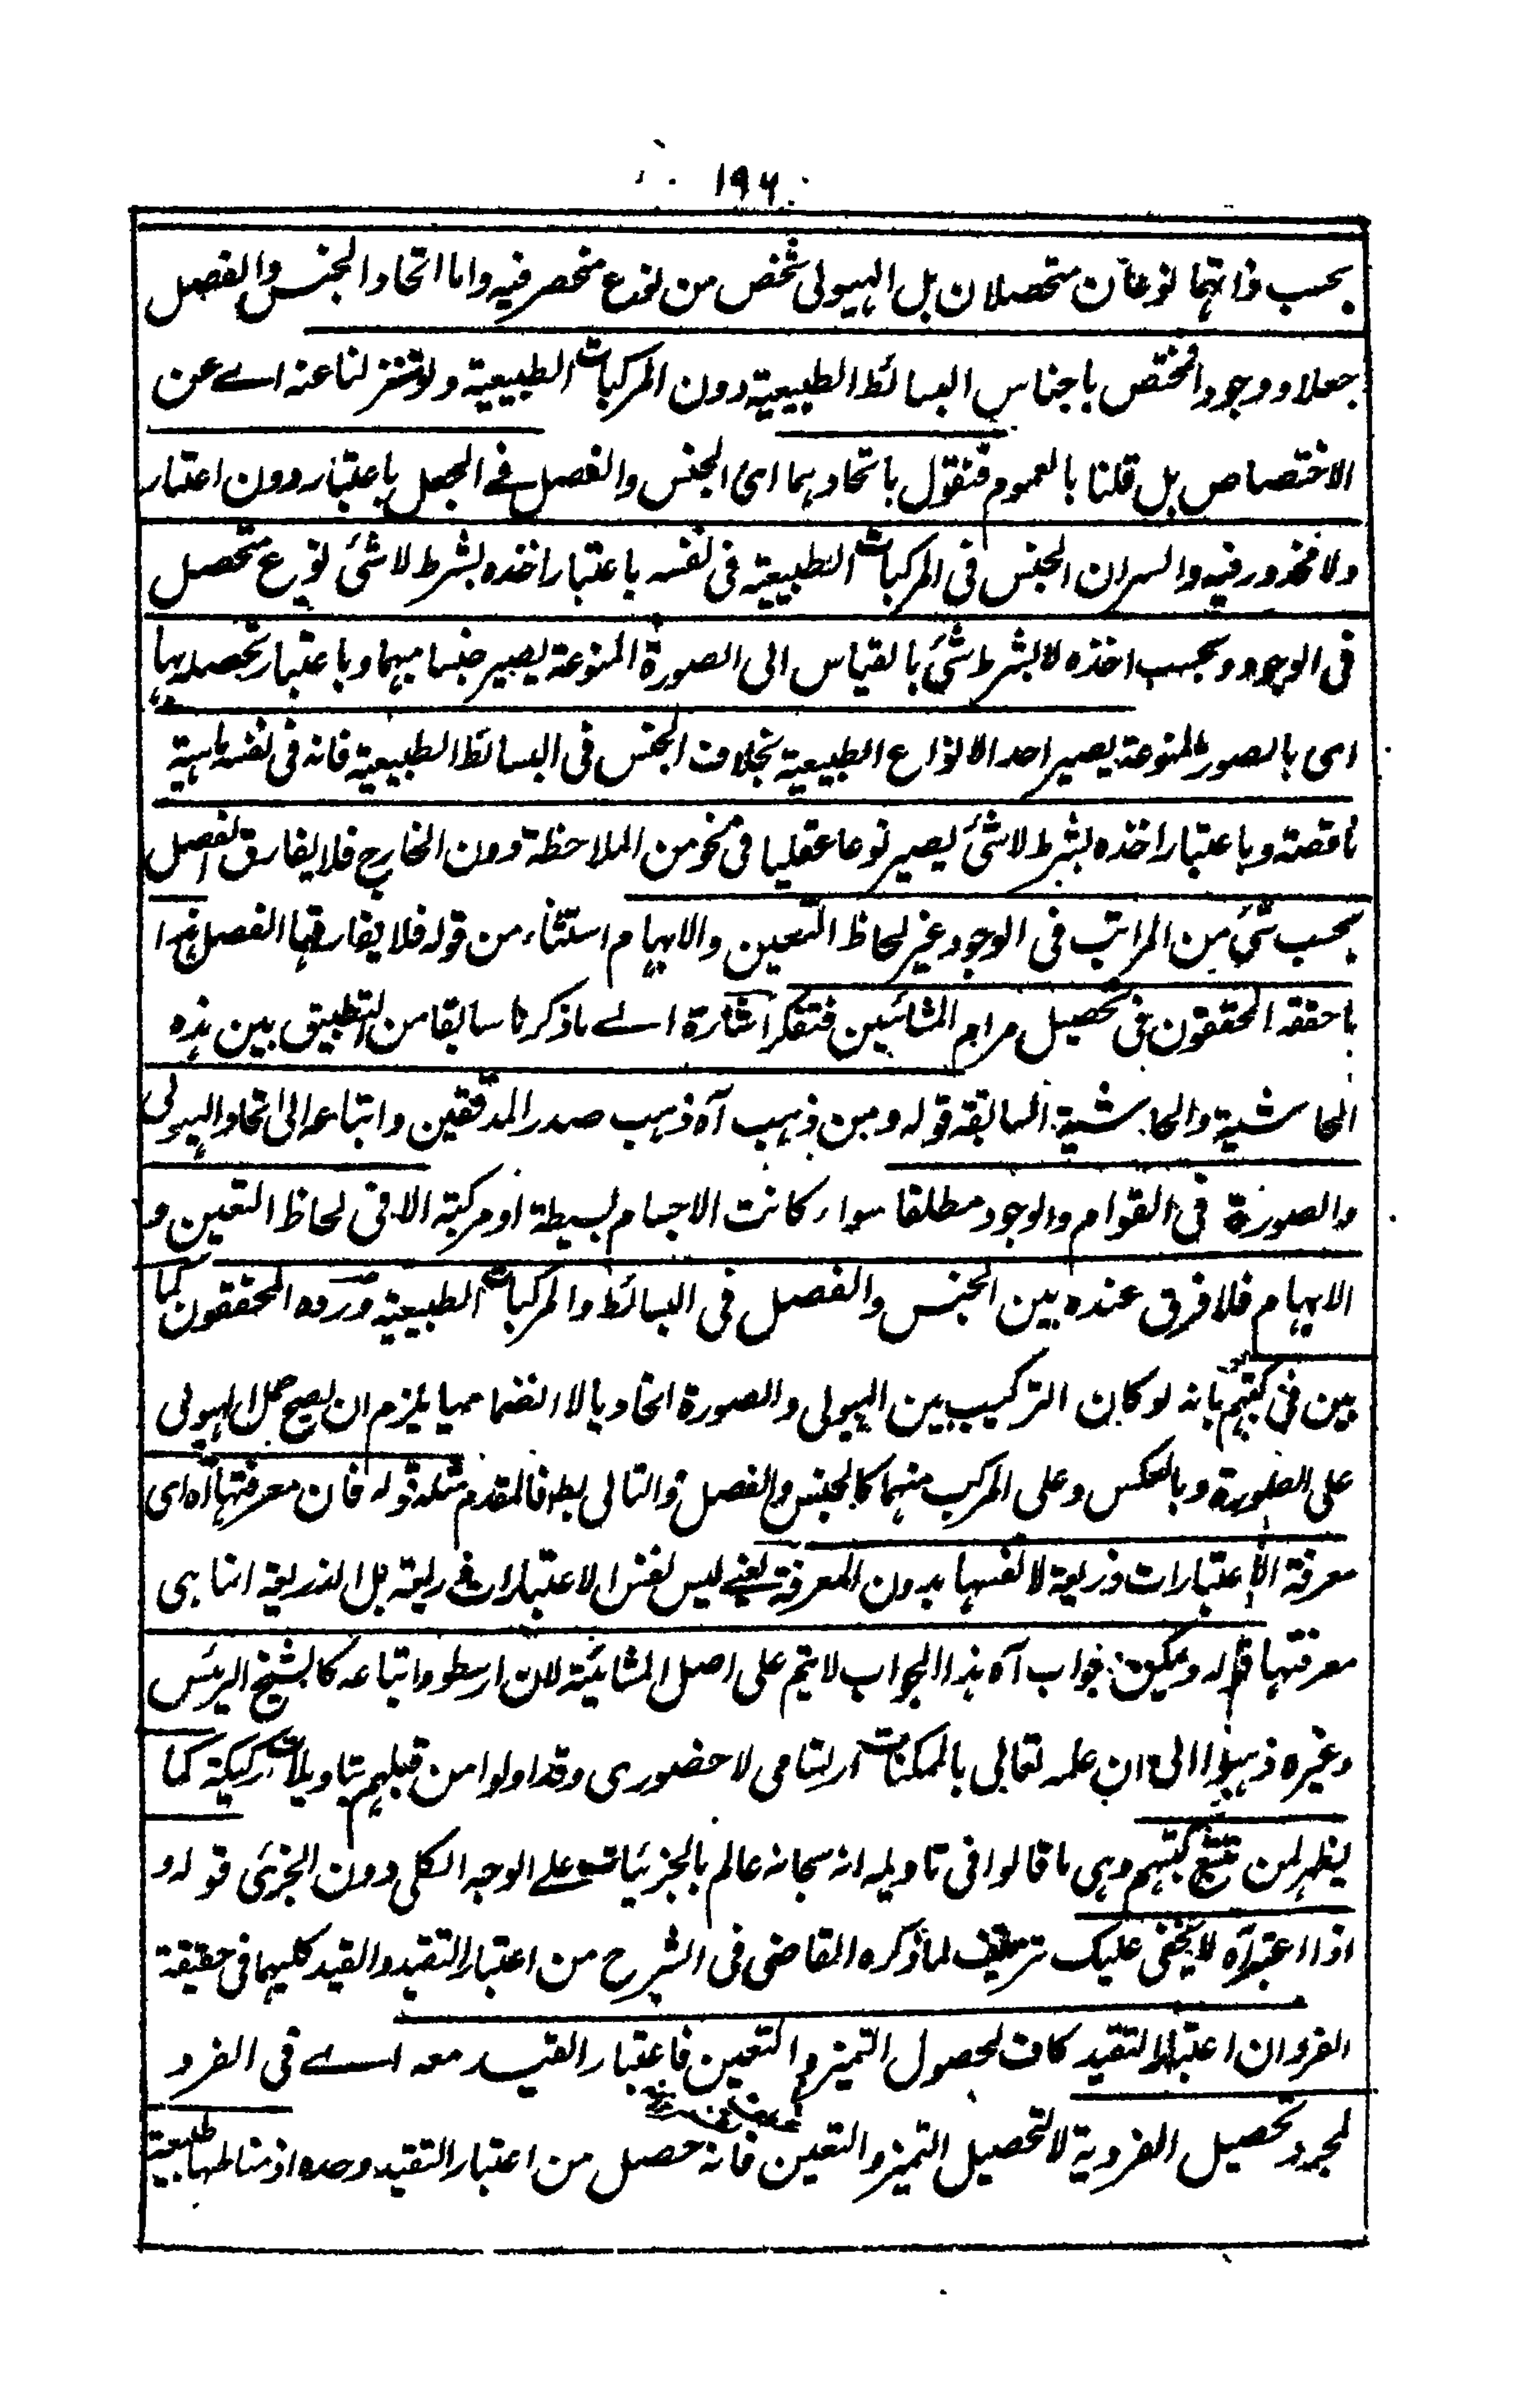 ١٩٦
بحسب ذاتهما نوعان متحصلان بل الهيولى شخص من نوع منحصر فيه واما اتحاد الجنس والفصل
جعلا ووجودا فمختص باجناس البسائط الطبيعية دون المركبات الطبيعية ولو تنزلنا عنه اے عن
الاختصاص بل قلنا بالعموم فنقول باتحادهما اى الجنس والفصل فے الجعل باعتبار دون اعتبار
ولا محذور فيه والسر ان الجنس فى المركبات الطبيعية فى نفسه باعتبار اخذه بشرط لا شئ نوع متحصل
فى الوجود وبحسب اخذه لا بشرط شئ بالقياس الى الصورة المنوعة يصير جنسا مبهما وباعتبار تحصله بها
اى بالصور المنوعة يصير احد الانواع الطبيعية بخلاف الجنس فى البسائط الطبيعية فانه فى نفسه ماهية
ناقصة وباعتبار اخذه بشرط لا شئ يصير نوعا عقليا فى نحو من الملاحظة دون الخارج فلا يفارق الفصل
بحسب شئ من المراتب فى الوجود غير لحاظ التعين والابهام استثناء من قوله فلا يفارقها الفصل هذا
ما حققه المحققون فى تحصيل مرام المشائين فتفكر اشارة اے ما ذكرنا سابقا من التطبيق بين هذه
الحاشية والحاشية السابقة قوله ومن ذهب آه ذهب صدر المدققين واتباعه الى اتحاد الهيولى
والصورة فى القوام والوجود مطلقا سواء كانت الاجسام بسيطة او مركبة الا فى لحاظ التعين و
الابهام فلا فرق عنده بين الجنس والفصل فى البسائط والمركبات الطبيعية ورده المحققون كما
بين فى كتبهم بانه لو كان التركيب بين الهيولى والصورة اتحاديا لا انضماميا يلزم ان يصح حمل الهيولى
على الصورة وبالعكس وعلى المركب منهما كالجنس والفصل والتالى بط فالمقدم مثله قوله فان معرفتها آه اى
معرفة الاعتبارات ذريعة لا نفسها بدون المعرفة يعنے ليس نفس الاعتبارات ذريعة بل الذريعة انما هى
معرفتها قوله ويمكن جواب آه هذا الجواب لا يتم على اصل المشائية لان ارسطو واتباعه كالشيخ الرئيس
وغيره ذهبوا الى ان علمه تعالى بالممكنات ارتسامى لا حضورى وقد اولوا من قبلهم بتاويلات ركيكة كما
يظهر لمن تتبع كتبهم وهى ما قالوا فى تاويله انه سبحانه عالم بالجزئيات علے الوجه الكلى دون الجزئى قوله و
اذا اعتبر آه لا يخفى عليك تزييف لما ذكره القاضى فى الشرح من اعتبار التقيد والقيد كليهما فى حقيقة
الفرد وان اعتبار التقيد كاف لحصول التميز والتعين فاعتبار القيد معه اے فى الفرد
لمجرد تحصيل الفردية لا لتحصيل التميز والتعين فانه حصل من اعتبار التقيد وحده اذ مناطها طبيعة